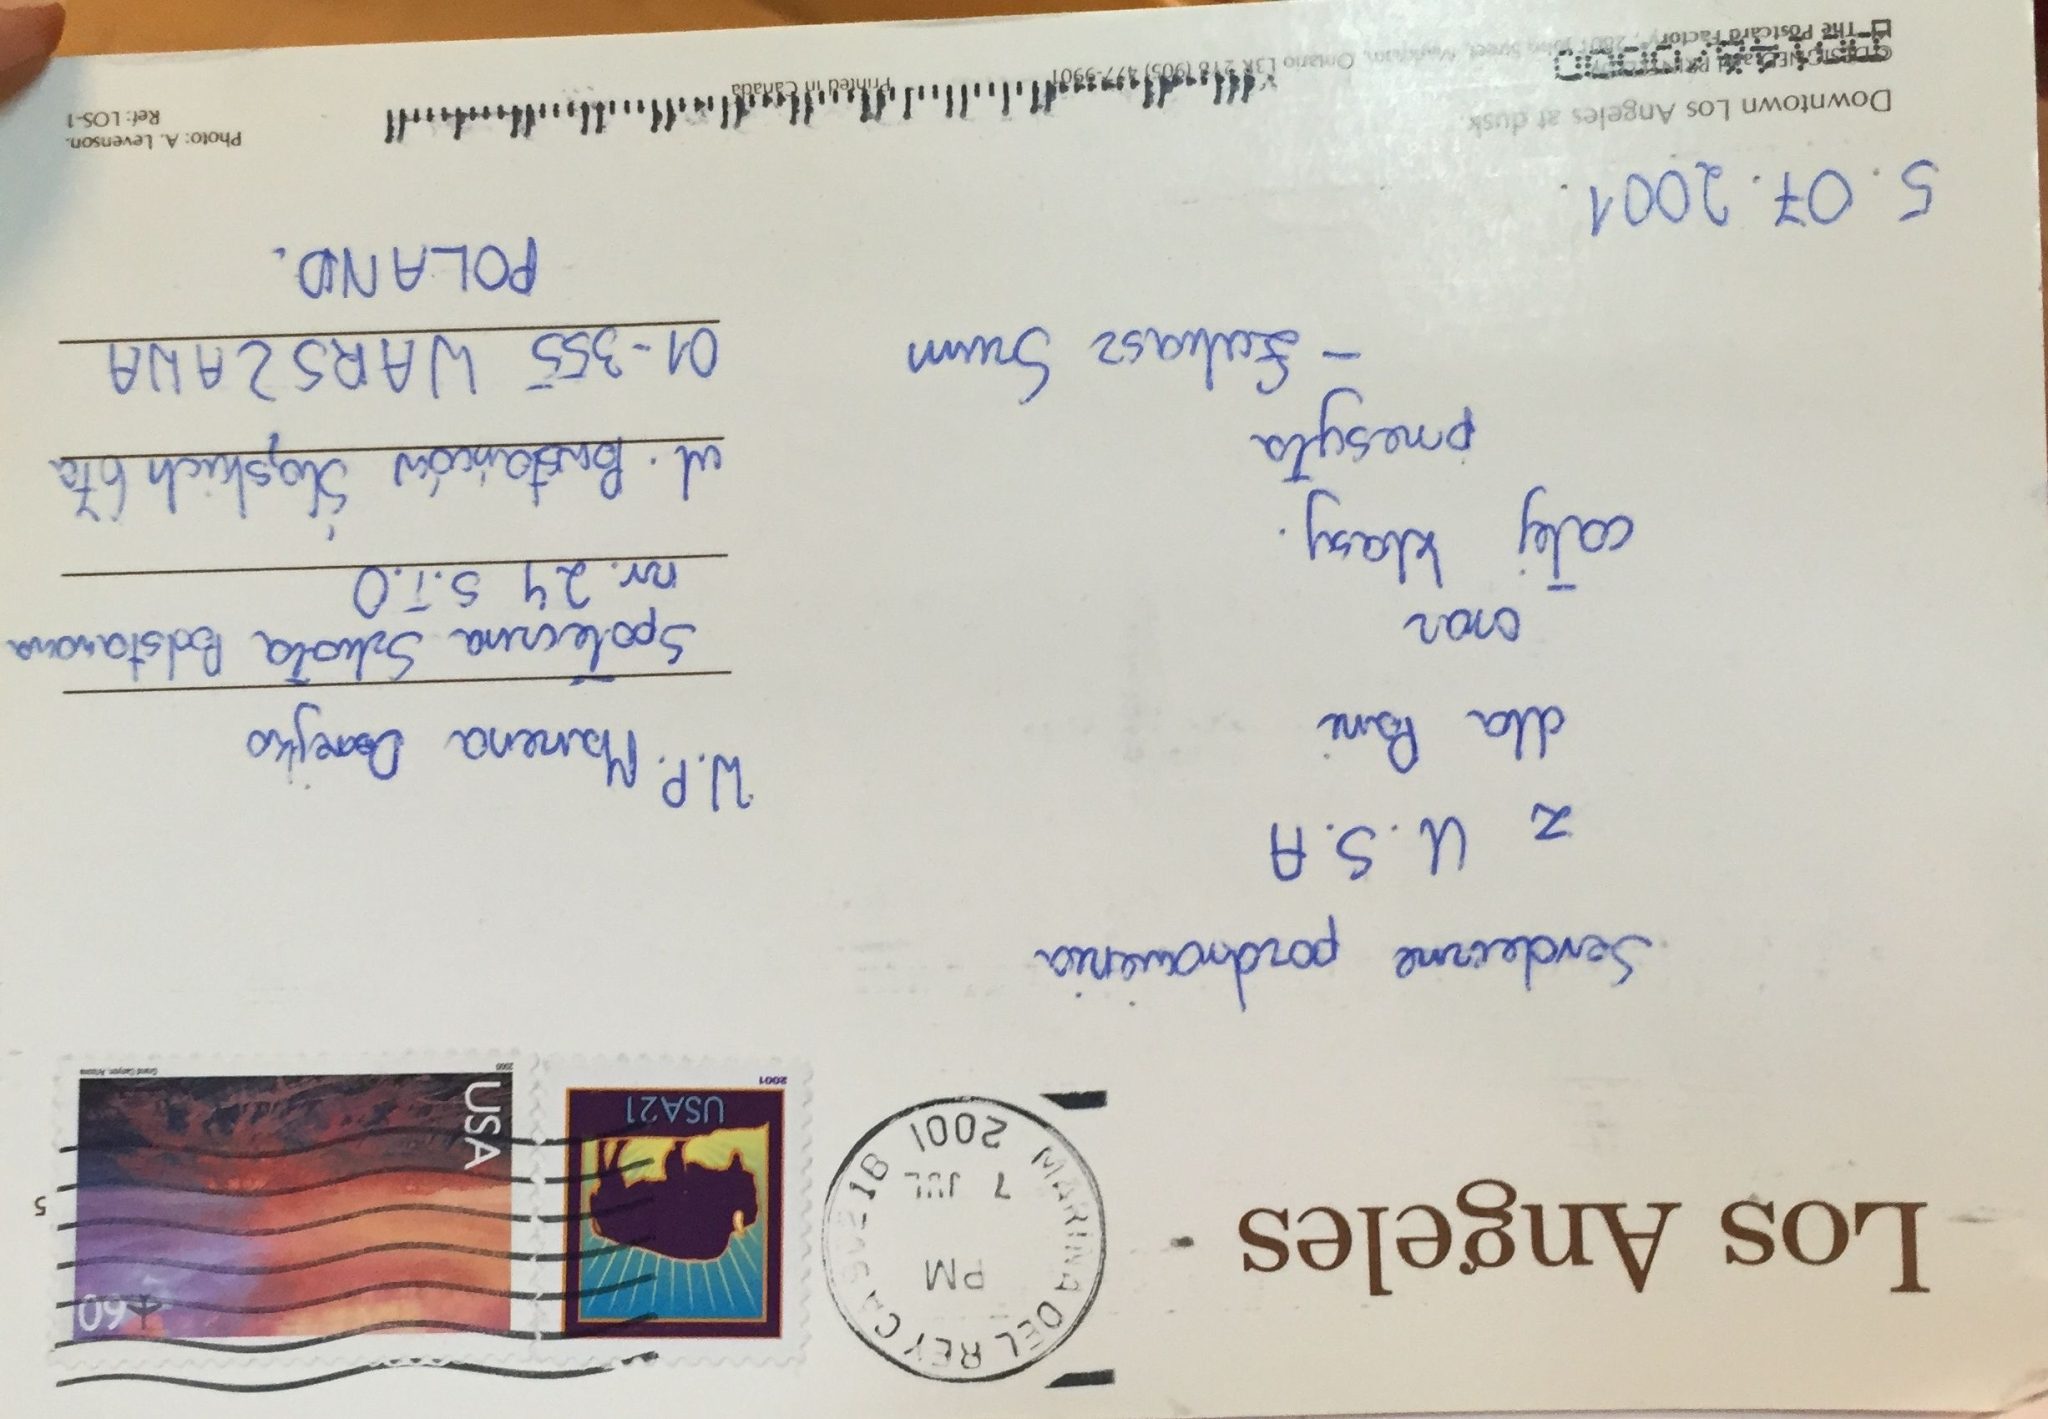 Los Angeles
MARINA DEL REY CA
PM
7 JUL
2001
USA21
2001
USA
60
2000
Grand Canyon, Arizona
5
Serdeczne pozdrowienia
z U.S.A
dla Pani
oraz
całej klasy.
przesyła
- Łukasz
5.07.2001.
W.P. Marzena
Społeczna Szkoła Podstawowa
nr. 24 S.T.O
ul. Powstańców Śląskich 67a
01-355 WARSZAWA
POLAND.
Downtown Los Angeles at dusk.
The Postcard Factory
Ontario L3R 2T8 (905) 477-9901
Printed in Canada
Photo: A. Levenson.
Ref: LOS-1